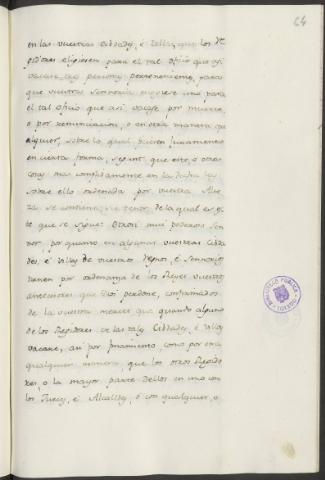 64
en las vuestras Cibdades, é Villas, que los Re-
gidores eligiesen para el tal oficio que asi
vacare, tres personas pertenecientes, para
que vuestra Sennoria proveiese uno para
el tal oficio que asi vacase por muerte,
o por renunciacion, o en otra manera qual
alquier, sobre lo qual fuesen juramento
en cierta forma, segunt que esto, é otras
cosas mas complidamente en la dicha ley
sobre ello ordenada por vuestra Alte-
za se contiene, su tenor de la qual es es-
te que se sigue: Otrosi mui poderoso Sen-
nor por quanto en algunas vuestras Cibda-
des, é Villas de vuestros Regnos, é Sennorios
tienen por ordenanza de los Reyes vuestros
antecesores que Dios perdone, confirmadas
de la vuestra merced que quando alguno
de los Regidores de las tales Cibdades, é Villas
vacare, asi por finamiento como por otra
qualquier manera, que los otros Regido-
res, o la mayor parte dellos en uno con
los Jueces, é Alcalldes, ó con qualquier, o
BIBLIOTECA PUBLICA
TOLEDO